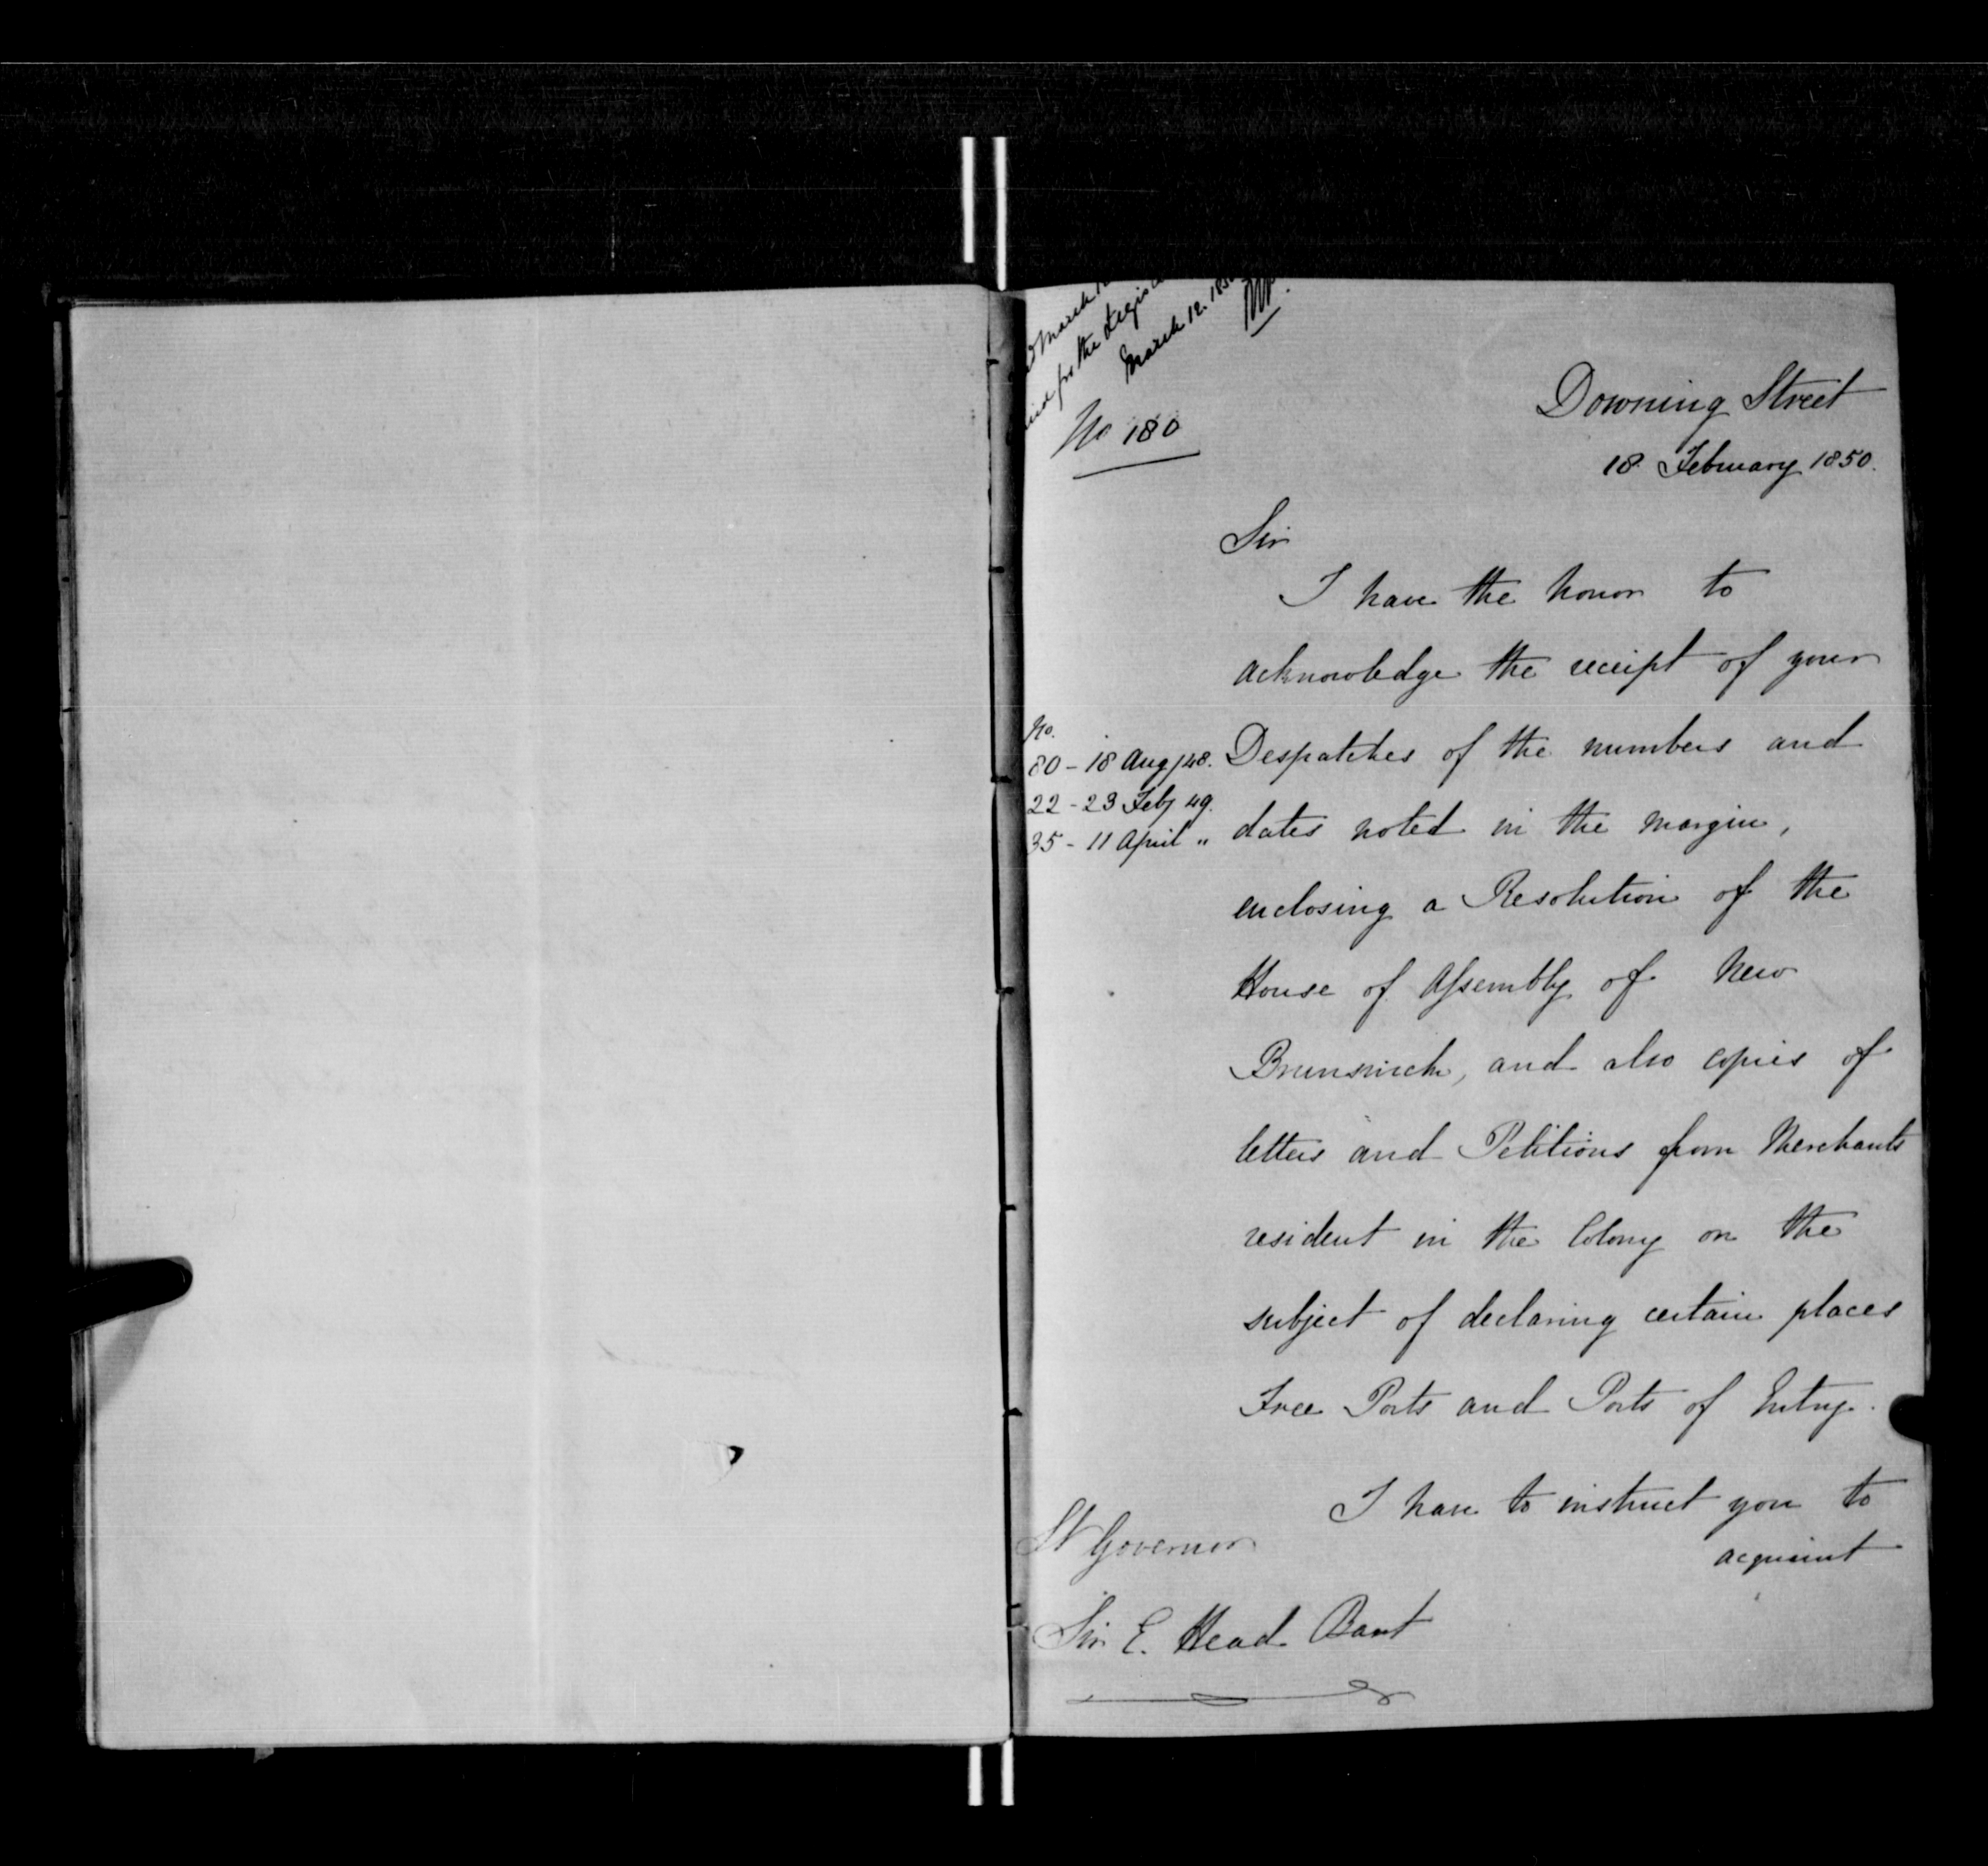 March
for the
March 12. 185
No 180
Downing Street
18 February 1850.
Sir
I have the honor to
acknowledge the receipt of your
No.
80 - 18 Aug/48.
22 - 23 Feby 49.
35 - 11 April "
Despatches of the numbers and
dates noted in the margin,
enclosing a Resolution of the
House of Assembly of New
Brunswick, and also copies of
letters and Petitions from Merchants
resident in the Colony on the
subject of declaring certain places
Free Ports and Ports of Entry.
I have to instruct you to
acquaint
Lt Governor
Sir E. Head Bart